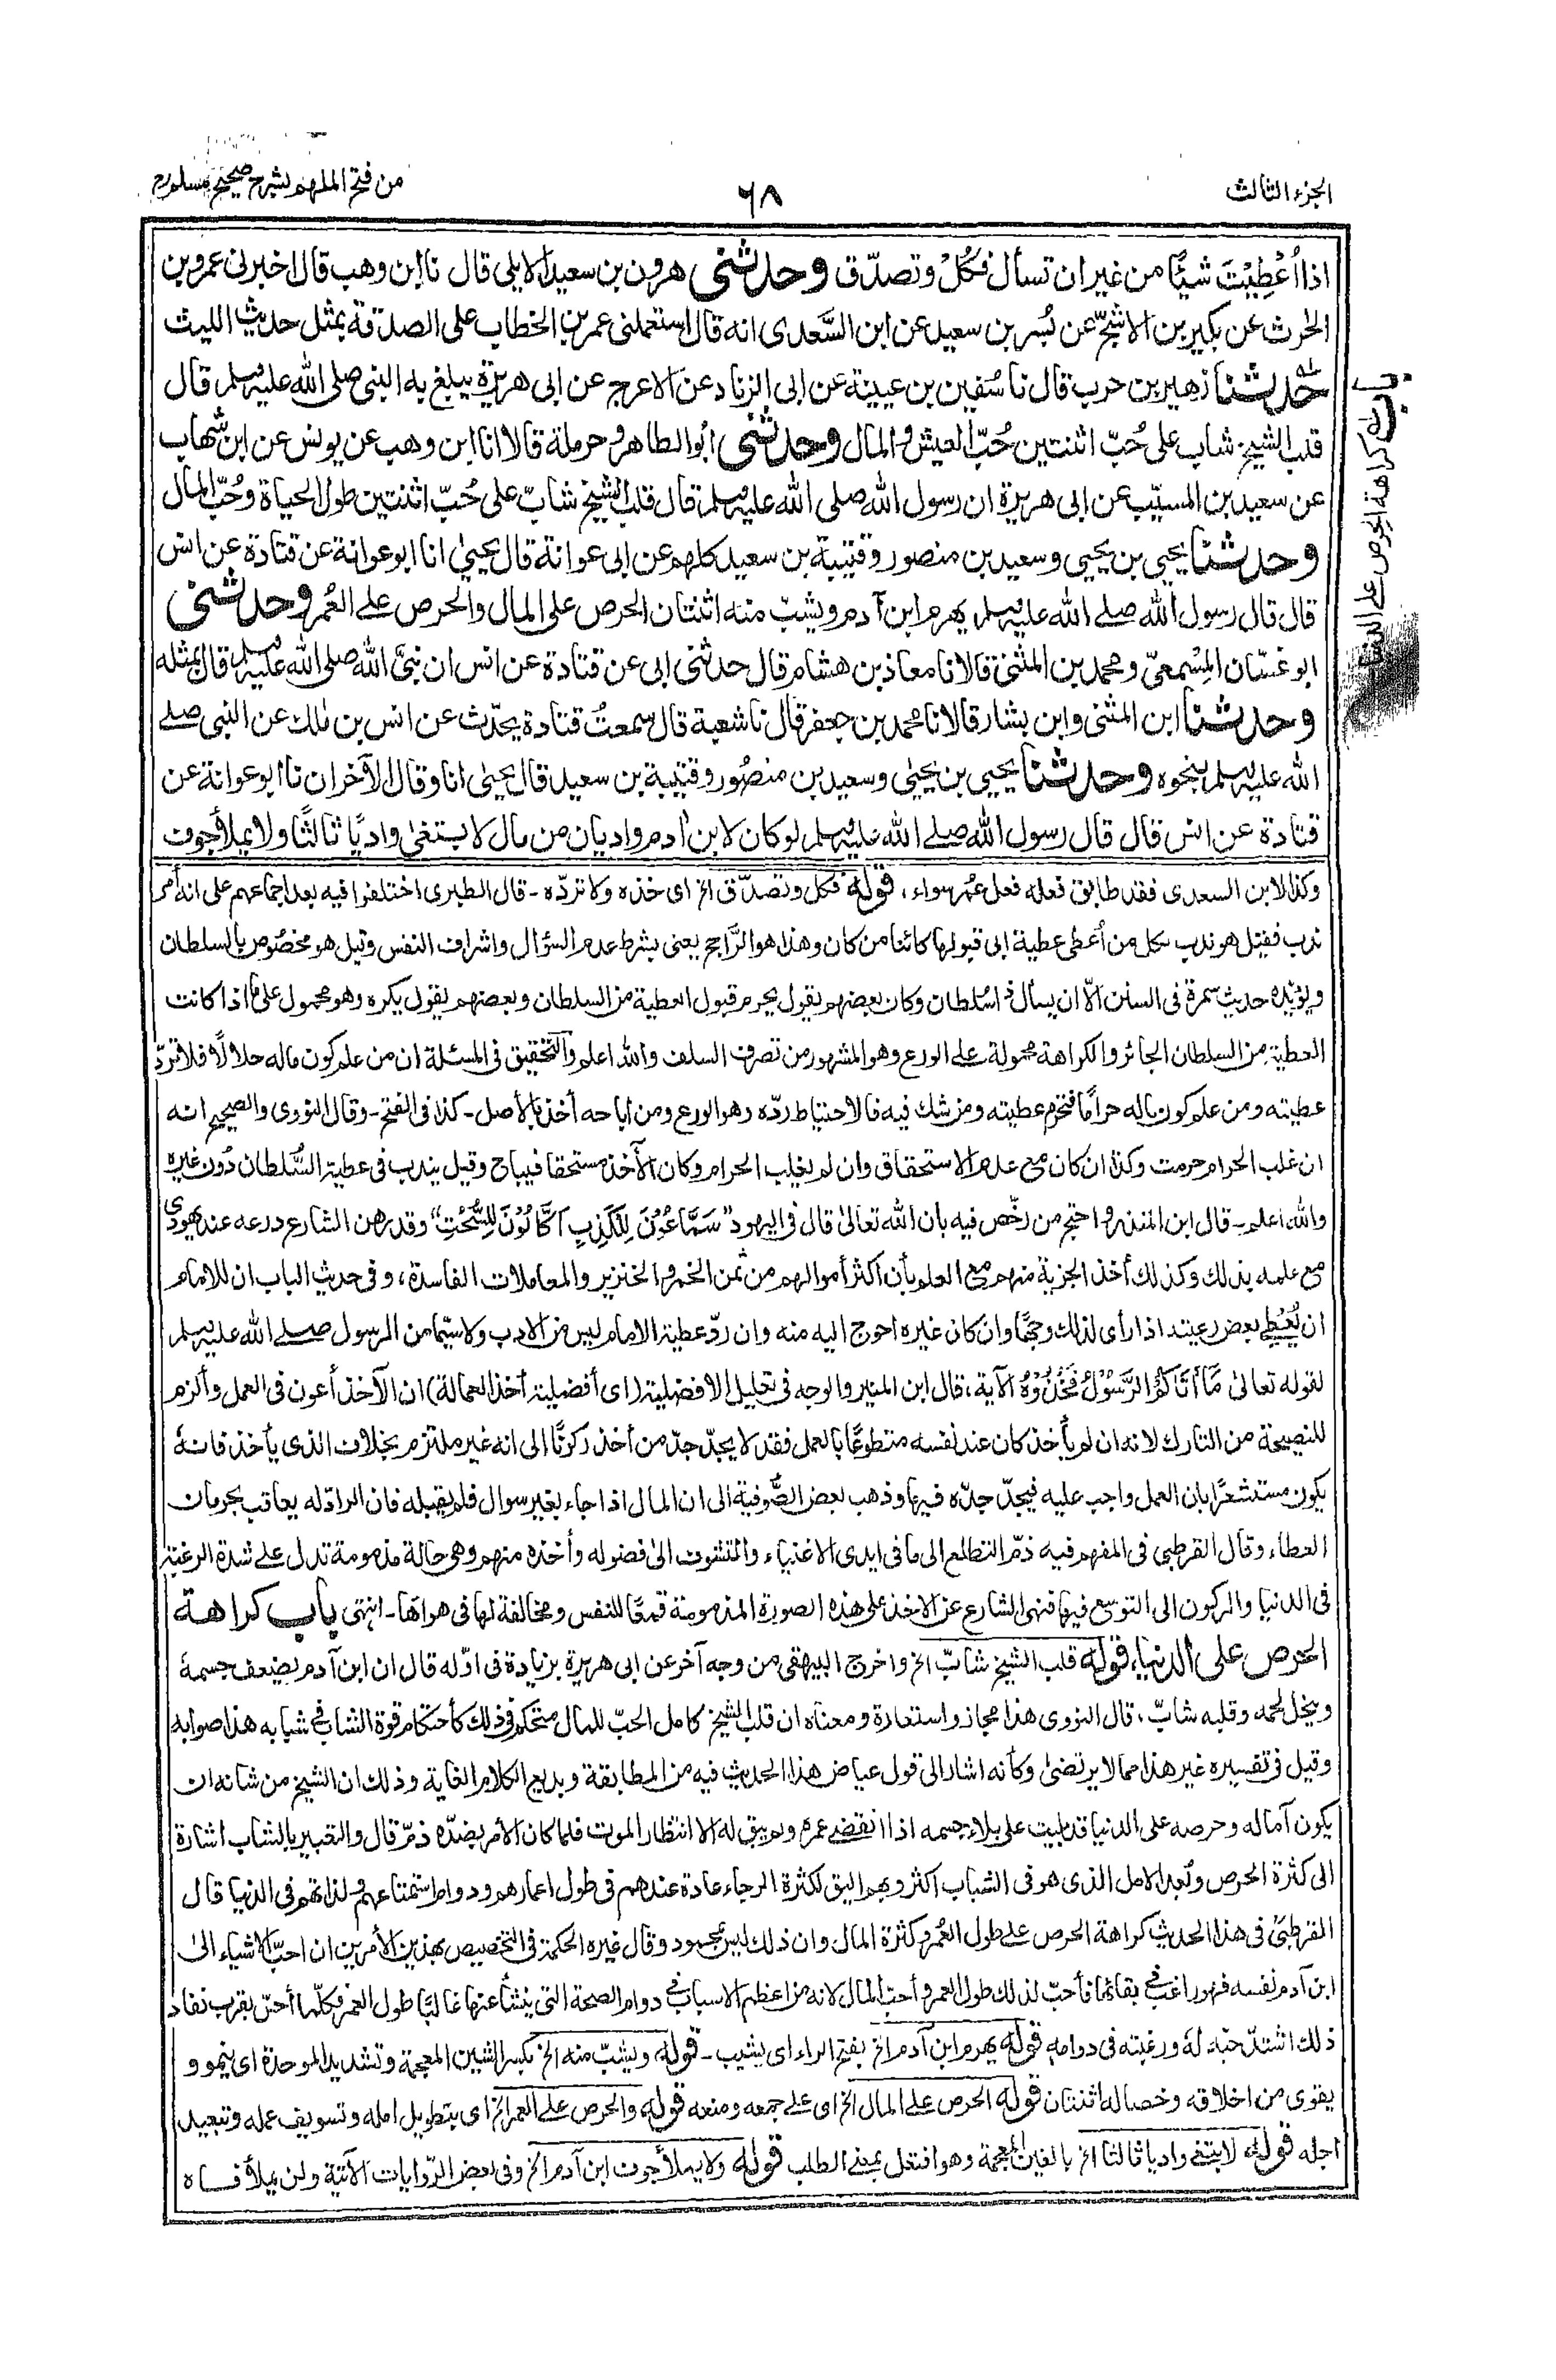 الجزء الثالث
٦٨
من فتح الملهم بشرح صحيح مسلم
باب كراهة الحرص على الدنيا
اذا اُعْطِيْتَ شيئًا من غير ان تسأل فكُلْ وتصدّق وحدثنى هرون بن سعيد الايلى قال نا ابن وهب قال اخبرنى عمرو بن
الحٰرث عن بكير بن الاشجّ عن بُسر بن سعيد عن ابن السَّعدى انه قال استعملنى عمر بن الخطاب على الصدقة بمثل حديث الليث
حدثنا زهير بن حرب قال نا سُفين بن عيينة عن ابى الزناد عن الاعرج عن ابى هريرة يبلغ به النبى صلى الله عليه وسلم قال
قلب الشيخ شاب على حُبّ اثنتين حُبّ العيش والمال وحدثنى ابُو الطاهر وحرملة قالا انا ابن وهب عن يونس عن ابن شهاب
عن سعيد بن المسيّب عن ابى هريرة ان رسول الله صلى الله عليه وسلم قال قلب الشيخ شابّ على حُبّ اثنتين طول الحياة وحُبّ المال
وحدثنا يحيى بن يحيى وسعيد بن منصور وقتيبة بن سعيد كلهم عن ابى عوانة قال يحيىٰ انا ابو عوانة عن قتادة عن انس
قال قال رسول الله صلے الله عليه وسلم يهرم ابن آدم ويشبّ منه اثنتان الحرص على المال والحرص علے العُمر وحدثنى
ابو غسّان المِسْمعىّ ومحمد بن المثنىٰ قالا نا معاذ بن هشام قال حدثنى ابى عن قتادة عن انس ان نبىَّ الله صلى الله عليه وسلم قال بمثله
وحدثنا ابن المثنى وابن بشار قالا نا محمد بن جعفر قال نا شعبة قال سمعتُ قتادة يحدّث عن انس بن مٰلك عن النبى صلے
الله عليه وسلم بنحوه وحدثنا يحيى بن يحيٰى وسعيد بن منصُور وقتيبة بن سعيد قال يحيىٰ انا وقال الآخران نا ابو عوانة عن
قتادة عن انس قال قال رسول الله صلے الله عليه وسلم لو كان لابن اٰدم واديان من مال لابتغىٰ واديًا ثالثًا ولا يملأ جوف
وكذا لابن السعدى فقد طابق فعله فعل عُمر سواء، قوله فكل وتصدّق الخ اى خذه ولا تردّه ـ قال الطبرى اختلفوا فيه بعد اجماعهم على انه أمر
ندب فقيل هو ندب لكل من أُعطى عطية ابى قبولها كائنا من كان وهذا هو الرَّاجح يعنى بشرط عدم السؤال واشراف النفس وقيل هو مخصُوص بالسلطان
ويؤيده حديث سمرة فى السنن الّا ان يسأل ذا سُلطان وكان بعضهم يقول يحرم قبول العطية من السلطان وبعضهم يقول يكره وهو محمول على ما اذا كانت
العطية من السلطان الجائر والكراهة محمولة على الورع وهو المشهور من تصرف السلف والله اعلم والتحقيق فى المسئلة ان من علم كون ماله حلالًا فلا تردّ
عطيته ومن علم كون ماله حرامًا فتحرم عطيته ومن شك فيه فالاحتياط ردّه وهو الورع ومن اباحه أخذ بالأصل ـ كذا فى الفتح ـ وقال النووى والصحيح انه
ان غلب الحرام حرمت وكذا ان كان مع عدم الاستحقاق وان لم يغلب الحرام وكان الآخذ مستحقا فيباح وقيل يندب فى عطية السُّلطان دُون غيره
والله اعلم ـ قال ابن المنذر واحتج من رخّص فيه بان الله تعالىٰ قال فى اليهود "سَمَّاعُوْنَ لِلْكَذِبِ اَكَّالُوْنَ لِلسُّحْتِ" وقد رهن الشارع درعه عند يهودى
مع علمه بذلك وكذلك أخذ الجزية منهم مع العلم بأن أكثر أموالهم من ثمن الخمر والخنزير والمعاملات الفاسدة، وفى حديث الباب ان للامام
ان يُعْطِى بعض رعيته اذا رأى لذلك وجهًا وان كان غيره احوج اليه منه وان ردّ عطية الامام ليس من الادب ولا سيّما من الرسول صلے الله عليه وسلم
لقوله تعالىٰ مَآ اٰتَاكُمُ الرَّسُوْلُ فَخُذُوْهُ الآية، قال ابن المنير والوجه فى تعليل الافضلية (اى أفضلية أخذ العمالة) ان الآخذ أعون فى العمل وألزم
للنصيحة من التارك لانه ان لم يأخذ كان عند نفسه متطوعًا بالعمل فقد لا يجدّ جدّ من أخذ ركونًا الى انه غير ملتزم بخلاف الذى يأخذ فانه
يكون مستشعرًا بان العمل واجب عليه فيجدّ جدّه فيها وذهب بعض الصُّوفية الى ان المال اذا جاء بغير سوال فلم يقبله فان الرادّ له يعاقب بحرمان
العطاء وقال القرطبى فى المفهم فيه ذمّ التطلع الى ما فى ايدى الاغنياء والتشوف الىٰ فضوله وأخذه منهم وهى حالة مذمومة تدل علے شدة الرغبة
فى الدنيا والركون الى التوسع فيها فنهى الشارع عن الاخذ على هذه الصورة المذمومة قمعًا للنفس ومخالفة لها فى هواها ـ انتهى باب كراهة
الحرص على الدنيا، قوله قلب الشيخ شابّ الخ واخرج البيهقى من وجه آخر عن ابى هريرة بزيادة فى اوّله قال ان ابن آدم يضعف جسمه
وينحل لحمه وقلبه شابّ، قال النووى هذا مجاز واستعارة ومعناه ان قلب الشيخ كامل الحبّ للمال متحكم فى ذلك كأحتكام قوة الشاب فى شبابه هذا صوابه
وقيل فى تفسيره غير هذا مما لا يرتضىٰ وكأنه اشار الى قول عياض هذا الحديث فيه من المطابقة وبديع الكلام الغاية وذلك ان الشيخ من شانه ان
يكون آماله وحرصه على الدنيا قد بليت على بلاء جسمه اذا انقضےٰ عمره ولم يبق له الا انتظار الموت فلما كان الأمر بضدّه ذمّ قال والتعبير بالشاب اشارة
الى كثرة الحرص وبُعد الامل الذى هو فى الشباب اكثر وبهم اليق لكثرة الرجاء عادة عندهم فى طول اعمارهم ودوام استمتاعهم ولذاتهم فى الدنيا قال
القرطبىّ فى هذا الحديث كراهة الحرص علے طول العُمر وكثرة المال وان ذلك ليس بمحمود وقال غيره الحكمة فى التخصيص بهذين الأمرين ان احبّ الاشياء الىٰ
ابن آدم نفسه فهو راغب فى بقائها فأحبّ لذلك طول العمر وأحبّ المال لانه من اعظم الاسباب فى دوام الصحة التى ينشأ عنها غالبًا طول العمر فكلّما أحسّ بقرب نفاد
ذلك اشتدّ حبّه له ورغبته فى دوامه قوله يهرم ابن آدم الخ بفتح الراء اى يشيب ـ قوله ويشبّ منه الخ بكسر الشين المعجمة وتشديد الموحدة اى ينمو و
يقوى من اخلاقه وخصاله اثنتان قوله الحرص علے المال الخ اى علے جمعه ومنعه قوله والحرص علے العمر الخ اى بتطويل امله وتسويف عمله وتبعيد
اجله قوله لابتغىٰ واديا ثالثا الخ بالغين المعجمة وهو افتعل بمعنے الطلب قوله ولا يملأ جوف ابن آدم الخ وفى بعض الرّوايات الآتية ولن يملأ فاه